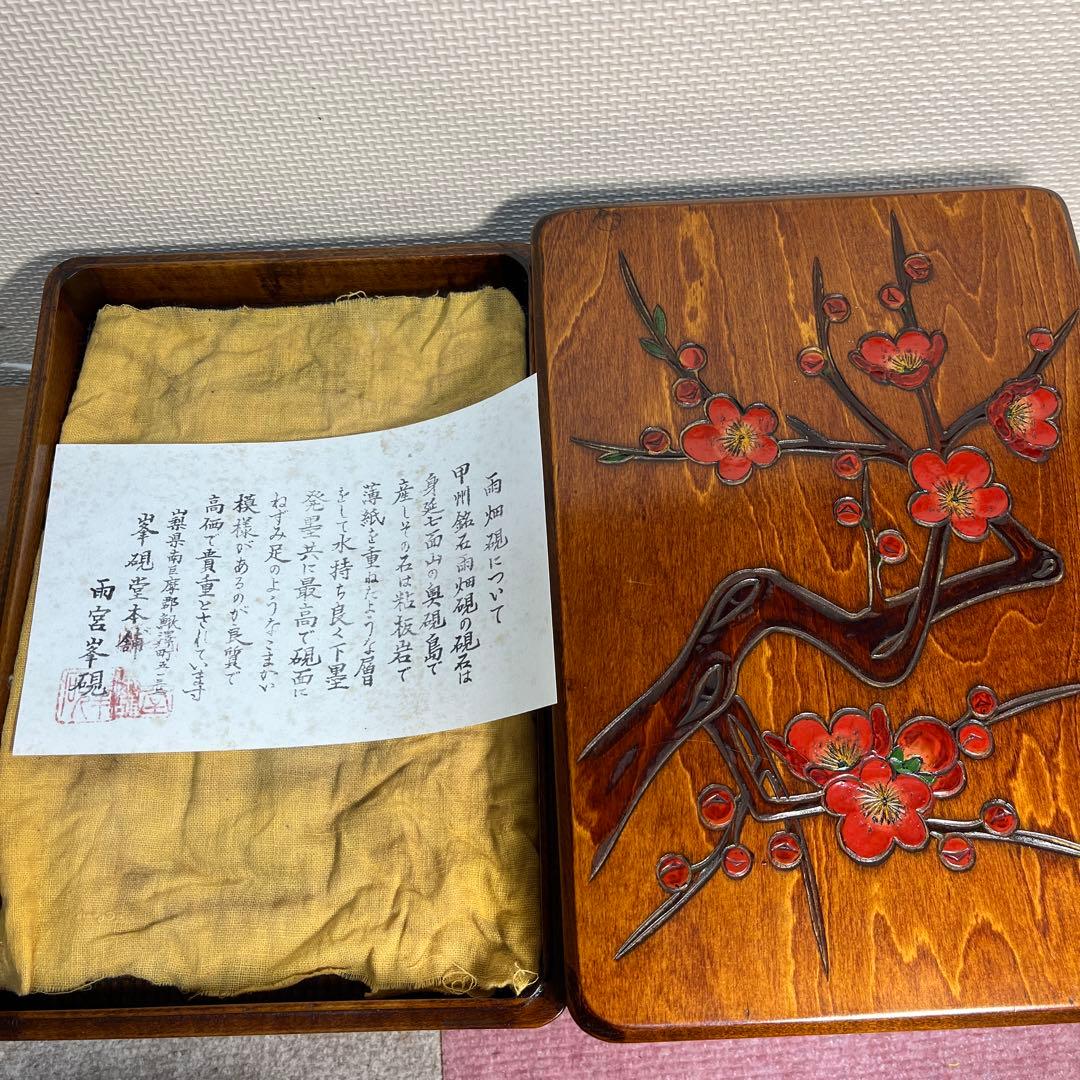 雨畑硯について
甲州銘石雨畑硯の硯石は
身延七面山の奥硯島で
産しその石は粘板岩で
薄紙を重ねたような層
をして水持ち良く下墨
発墨共に最高で硯面に
ねずみ足のようなこまかい
模様があるのが良質で
高価で貴重とされています
山梨県南巨摩郡鰍沢町五一三
峯硯堂本舗
雨宮峯硯